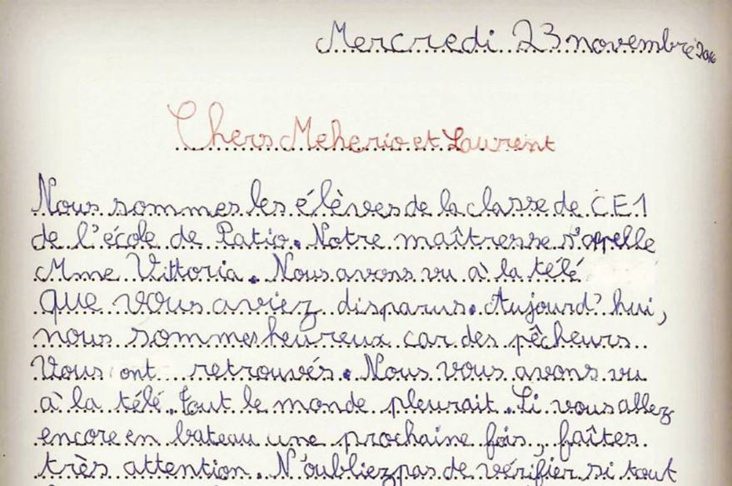 Mercredi 23 novembre 2016
Chers Meherio et Laurent
Nous sommes les élèves de la classe de CE1
de l'école de Patio. Notre maîtresse s'appelle
Mme Vittoria. Nous avons vu à la télé
que vous aviez disparus. Aujourd'hui,
nous sommes heureux car des pêcheurs
Vous ont retrouvés. Nous vous avons vu
à la télé. Tout le monde pleurait. Si vous allez
encore en bateau une prochaine fois, faîtes
très attention. N'oubliez pas de vérifier si tout